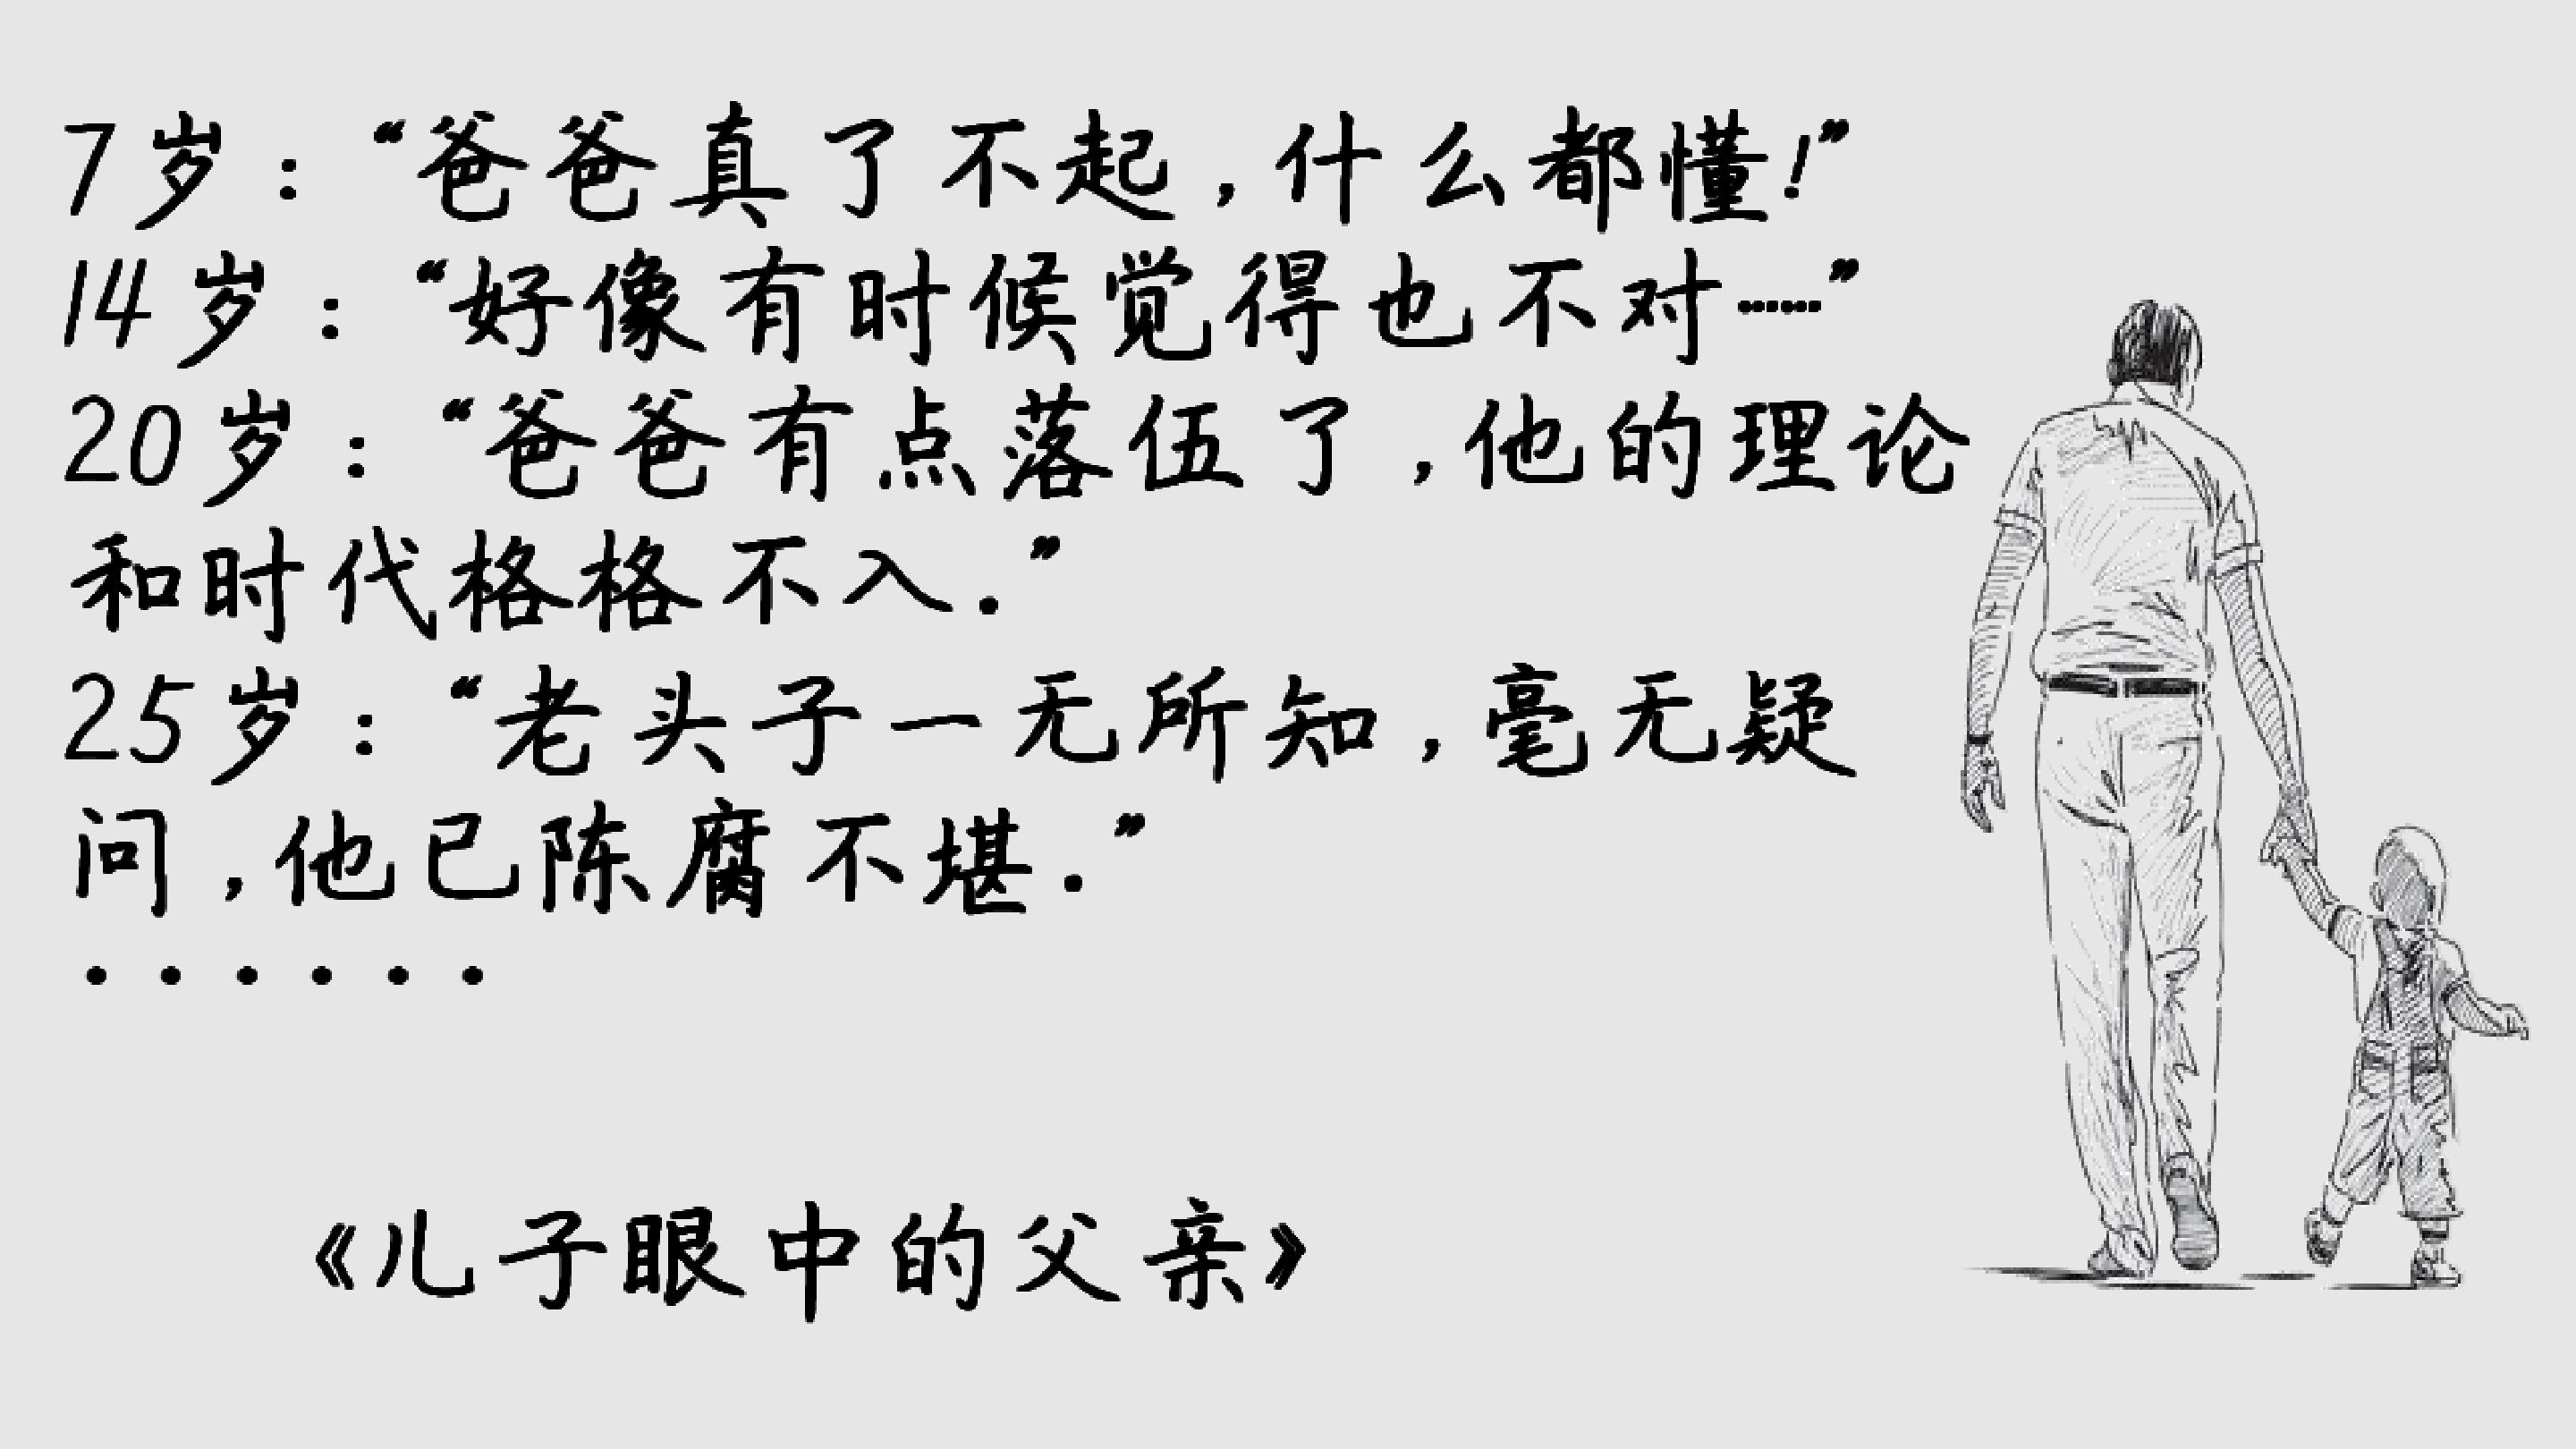 7岁：“爸爸真了不起，什么都懂！”
14岁：“好像有时候觉得也不对……”
20岁：“爸爸有点落伍了，他的理论
和时代格格不入.”
25岁：“老头子一无所知，毫无疑
问，他已陈腐不堪.”
······
《儿子眼中的父亲》